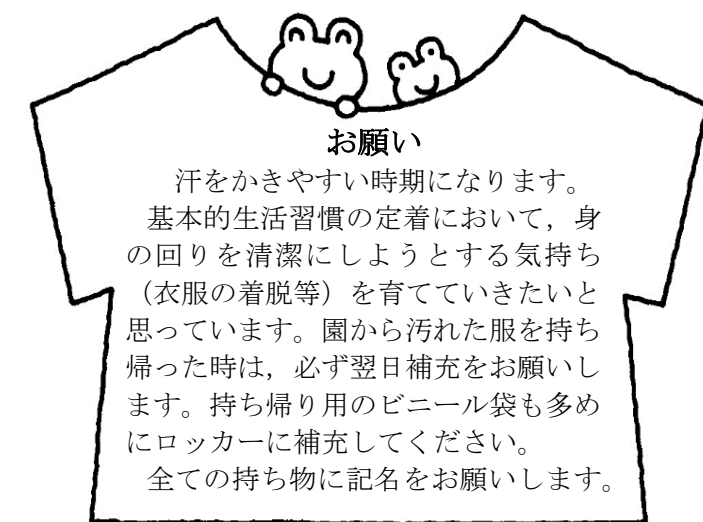 お願い
汗をかきやすい時期になります。
基本的生活習慣の定着において，身
の回りを清潔にしようとする気持ち
（衣服の着脱等）を育てていきたいと
思っています。園から汚れた服を持ち
帰った時は，必ず翌日補充をお願いし
ます。持ち帰り用のビニール袋も多め
にロッカーに補充してください。
全ての持ち物に記名をお願いします。